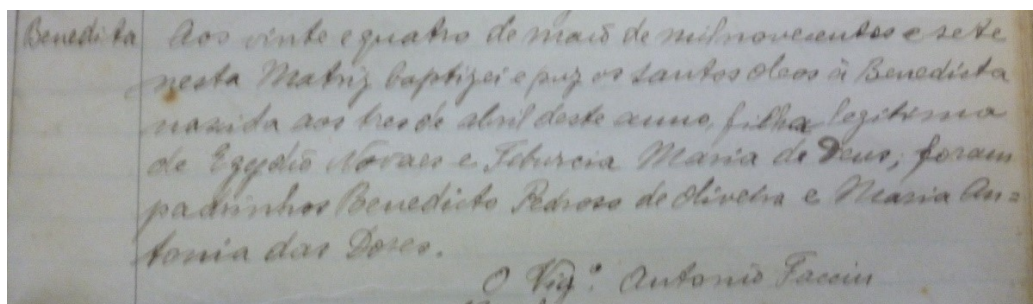 Benedicta Aos vinte e quatro de maio de mil novecentos e sete
nesta Matriz baptizei e puz os santos oleos à Benedicta
nascida aos tres de abril deste anno, filha legitima
de Egydio Novaes e Tiburcia Maria de Deus; foram
padrinhos Benedicto Pedroso de Oliveira e Maria An=
tonia das Dores.
O Vigº. Antonio